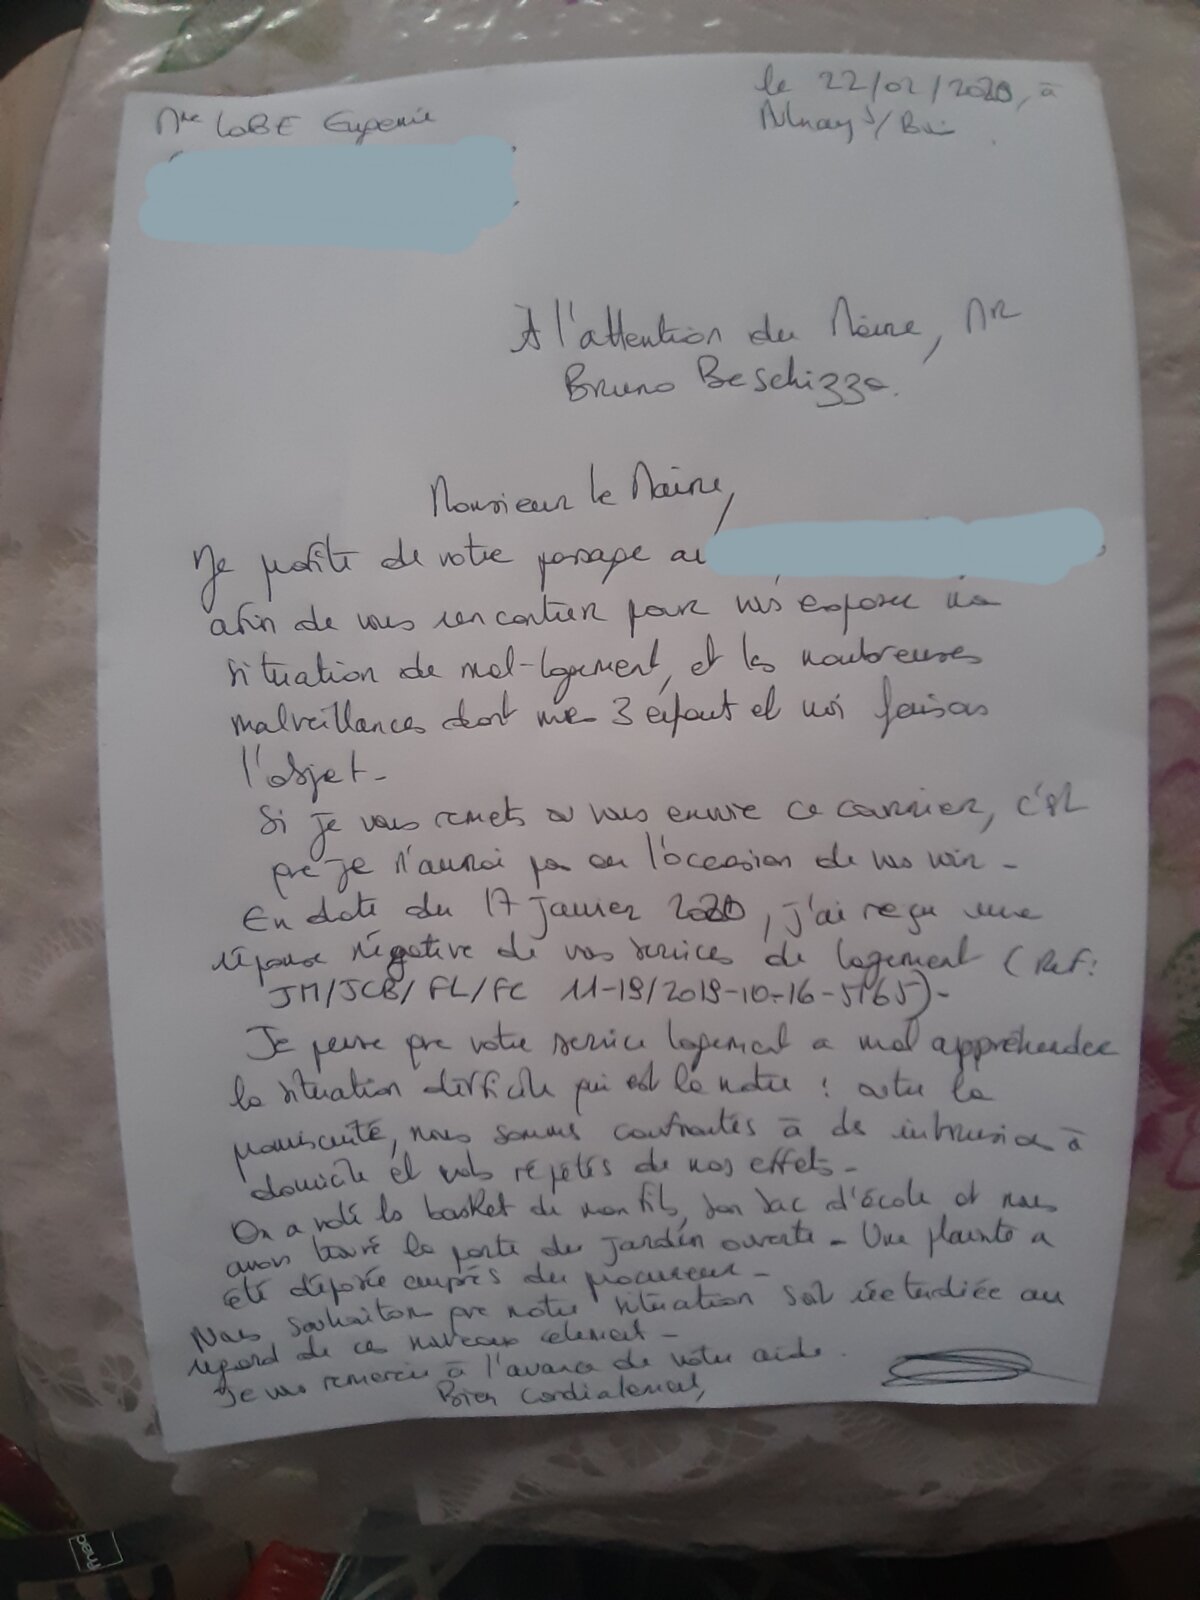 Mme LOBE Eugenie
le 22/02/2020, à
Aulnay s/Bois
À l'attention du Maire, Mr
Bruno Beschizza.
Monsieur le Maire,
Je profite de votre passage au
afin de vous rencontrer pour vous exposer ma
situation de mal-logement, et les nombreuses
malveillances dont mes 3 enfant et moi faisons
l'objet-
Si je vous remets ou vous envoie ce courrier, c'est
que je n'aurai pas eu l'occasion de vous voir-
En date du 17 janvier 2020, j'ai reçu une
réponse négative de vos services de logement (Ref:
JM/JCB/FL/FC 11-19/2019-10-16-5165)-
Je pense que votre service logement a mal appréhendee
la situation difficile qui est la notre : outre la
promiscuité, nous sommes confrontés à des intrusions à
domicile et vols répétés de nos effets-
On a volé la basket de mon fils, son sac d'école et nous
avons trouvé la porte du jardin ouverte- Une plainte a
été déposée auprès du procureur-
Nous souhaitons que notre situation soit réetudiée au
regard de ces nouveaux element-
Je vous remercie à l'avance de votre aide.
Bien Cordialement,
fnac